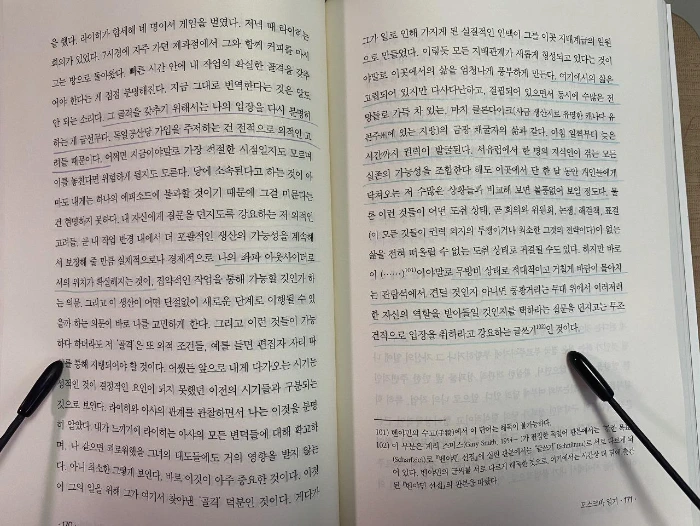 을 했다. 라이히가 합세해 네 명이서 게임을 벌였다. 저녁 때 타이로는
회의가 있었다. 7시경에 자주 가던 제과점에서 그와 함께 커피를 마시
그는 방으로 돌아왔다. 빠른 시간 안에 내 작업의 확실한 골격을 갖추
어야 한다는 게 점점 분명해진다. 지금 그대로 번역한다는 것은 말도
안 되는 소리다. 그 골격을 갖추기 위해서는 나의 입장을 다시 분명히
하는 게 급선무다. 독일공산당 가입을 주저하는 건 전적으로 외적인 고
려들 때문이다. 어쩌면 지금이야말로 가장 적절한 시점일지도 모르며
이를 놓친다면 위험하게 될지도 모른다. 당에 소속된다고 하는 것이 아
마도 내게는 하나의 에피소드에 불과할 것이기 때문에 그걸 미룬다는
건 현명하지 못하다. 내 자신에게 질문을 던지도록 강요하는 저 외적인
고려들, 곧 내 작업 반경 내에서 더 포괄적인 생산의 가능성을 계속해
서 보장해 줄 만큼 실제적으로나 경제적으로 나의 좌파 아웃사이더로
서의 위치가 확실해지는 것이, 집약적인 작업을 통해 가능할 것인가 하
는 의문, 그리고 이 생산이 어떤 단절없이 새로운 단계로 이행될 수 있
을까 하는 의문이 바로 나를 고민하게 한다. 그리고 이런 것들이 가능
하다 하더라도 저 '골격'은 또 외적 조건들, 예를 들면 편집자 사리 따
를 통해 지탱되어야 할 것이다. 어쨌든 앞으로 내게 다가오는 시기는
성적인 것이 결정적인 요인이 되지 못했던 이전의 시기들과 구분되는
것으로 보인다. 라이히와 아샤의 관계를 관찰하면서 나는 이것을 분명
히 알았다. 내가 느끼기에 라이히는 아샤의 모든 변덕들에 대해 확고하
며, 나 같으면 괴로워했을 그녀의 태도들에도 거의 영향을 받지 않는
다. 아니 최소한 그렇게 보인다. 바로 이것이 아주 중요한 것이다. 이것
이 그의 일을 위해 그가 여기서 찾아낸 '골격' 덕분인 것이다. 게다가
170
그가 일로 인해 가지게 된 실질적인 인맥이 그를 이곳 지배계급의 일원
으로 만들었다. 이렇듯 모든 지배관계가 새롭게 형성되고 있다는 것이
야말로 이곳에서의 삶을 엄청나게 풍부하게 만든다. 여기에서의 삶은
고립되어 있지만 다사다난하고, 결핍되어 있으면서 동시에 수많은 전
망들로 가득 차 있는, 마치 클론다이크(사금 생산지로 유명한 캐나다 유
콘주에 있는 지방)의 금광 채굴자의 삶과 같다. 아침 일찍부터 늦은
시간까지 권력이 발굴된다. 서유럽에서 한 명의 지식인이 겪는 모든
실존의 가능성을 조합한다 해도 이곳에서 단 한 달 동안 개인들에게
닥쳐오는 저 수많은 상황들과 비교해 보면 볼품없어 보일 정도다. 물
론 이런 것들이 어떤 도취 상태, 곧 회의와 위원회, 논쟁, 해결책, 표결
(이 모든 것들이 권력 의지의 투쟁이거나 최소한 그것의 전략이다)이 없는
삶을 전혀 떠올릴 수 없는 도취 상태로 귀결될 수도 있다. 하지만 바로
이 (……)101)이야말로 무방비 상태로 적대적이고 거칠게 바람이 몰아치
는 관람석에서 견딜 것인지 아니면 웅황거리는 무대 위에서 이러저러
한 자신의 역할을 받아들일 것인지를 택하라는 질문을 던지고는 무조
건적으로 입장을 취하라고 강요하는 글쓰기102)인 것이다.
101) 벤야민의 수고(手稿)에서 이 단어는 해독이 불가능하다.
102) 이 부분은 게리 스미스(Gary Smith,
된 『벤야민 선집』의 판본을 따랐다.
모스크바 일기 · 171